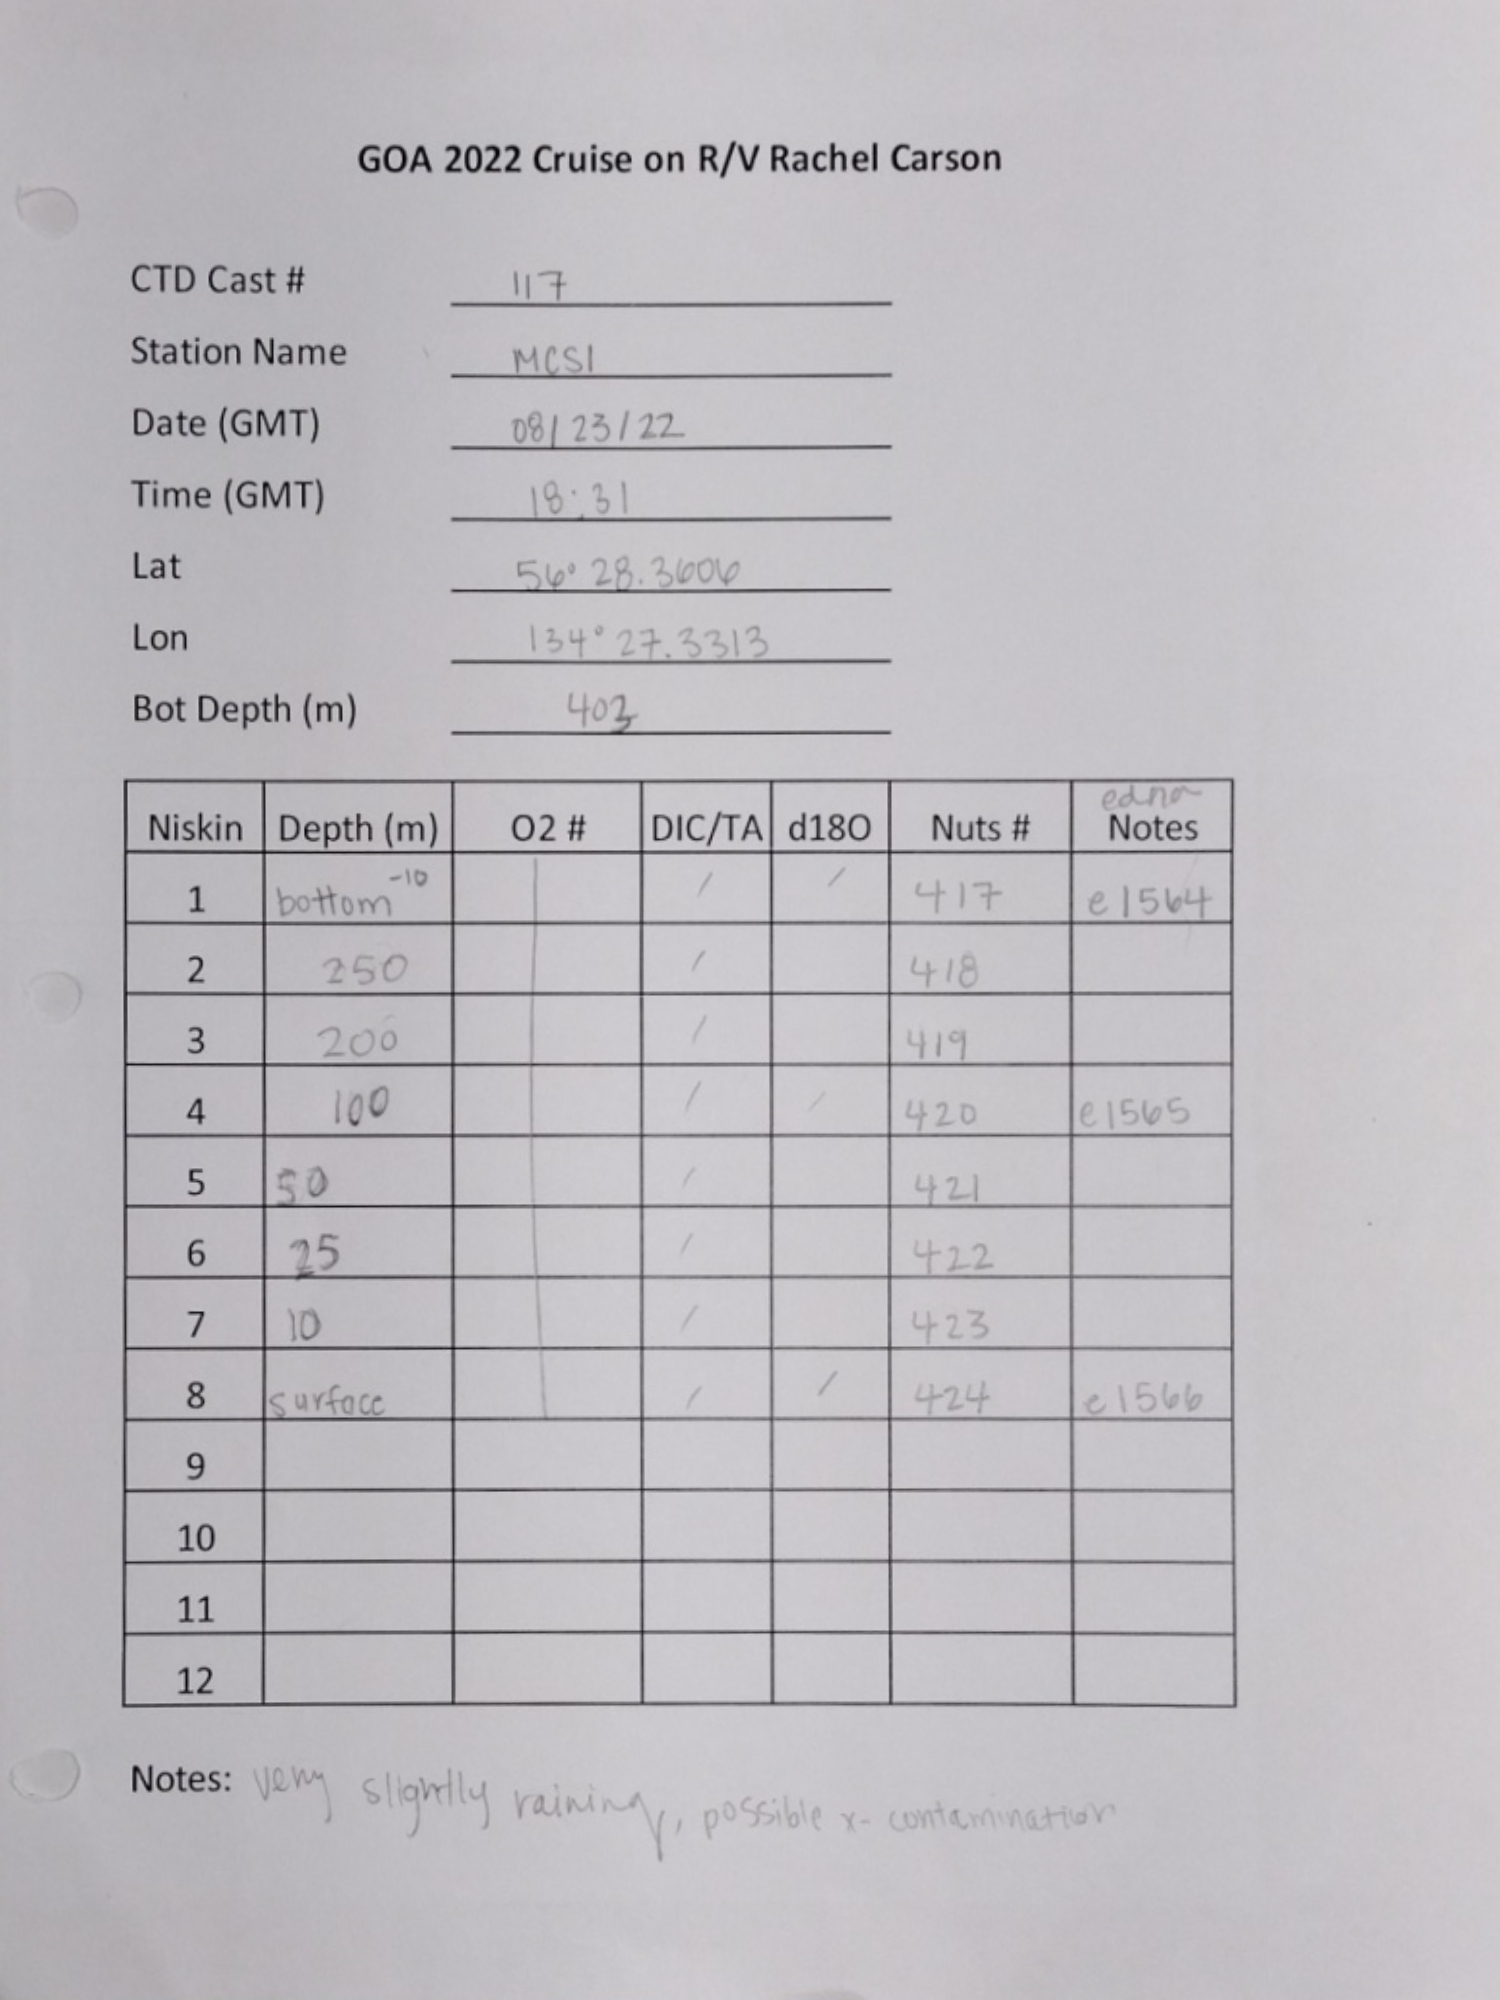 GOA 2022 Cruise on R/V Rachel Carson
CTD Cast # 117
Station Name MCS1
Date (GMT) 08/23/22
Time (GMT) 18:31
Lat 56° 28.3606
Lon 134° 27.3313
Bot Depth (m) 403
edna
Niskin Depth (m) O2 # DIC/TA d18O Nuts # Notes
1 bottom -10 / / 417 e1564
2 250 / 418
3 200 / 419
4 100 / / 420 e1565
5 50 / 421
6 25 / 422
7 10 / 423
8 surface / / 424 e1566
9
10
11
12
Notes: very slightly raining, possible x-contamination